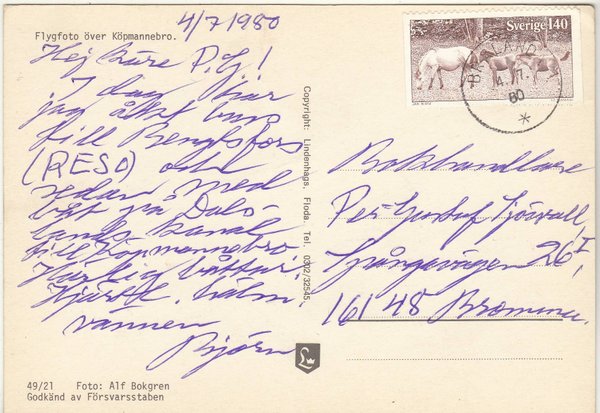 4/7 1980
Flygfoto över Köpmannebro.
Hej Käre P.G!
I dag har
jag åkt buss
till Bengtsfors
(RESO) och
sedan med
båt på Dals-
lands kanal
till Köpmannebro.
Härlig båttur.
Hjärtl. häln.
vännen
Björn
49/21 Foto: Alf Bokgren
Godkänd av Försvarsstaben
Copyright: Lindenhags. Floda. Tel. 0302/32545.
Sverige 140
4. 7.
80
Bokhandlare
Per Gustaf Sjövall
Spångavägen 26 I,
161 48 Bromma.